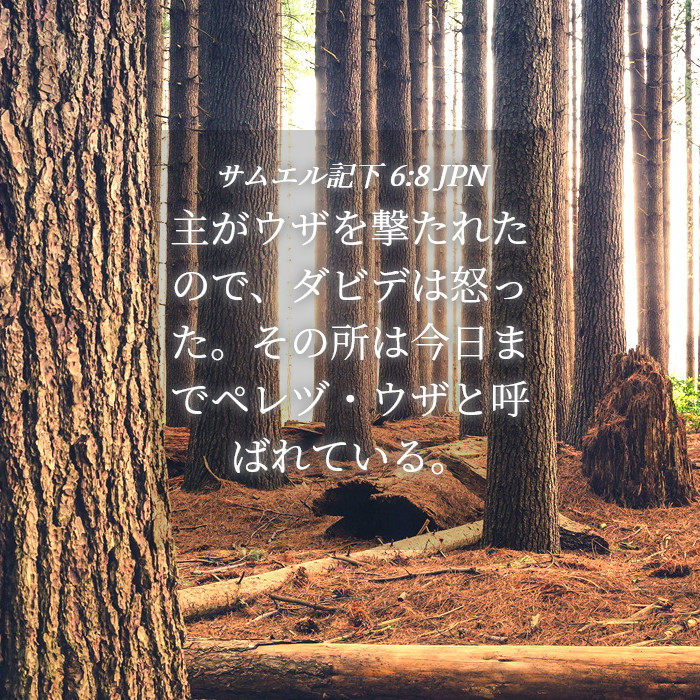 サムエル記下 6:8 JPN
主がウザを撃たれた
ので、ダビデは怒っ
た。その所は今日ま
でペレヅ・ウザと呼
ばれている。